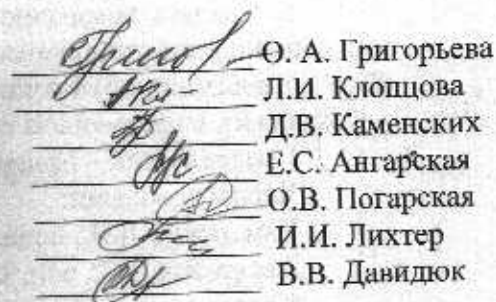 О. А. Григорьева
Л.И. Клопцова
Д.В. Каменских
Е.С. Ангарская
О.В. Погарская
И.И. Лихтер
В.В. Давидюк